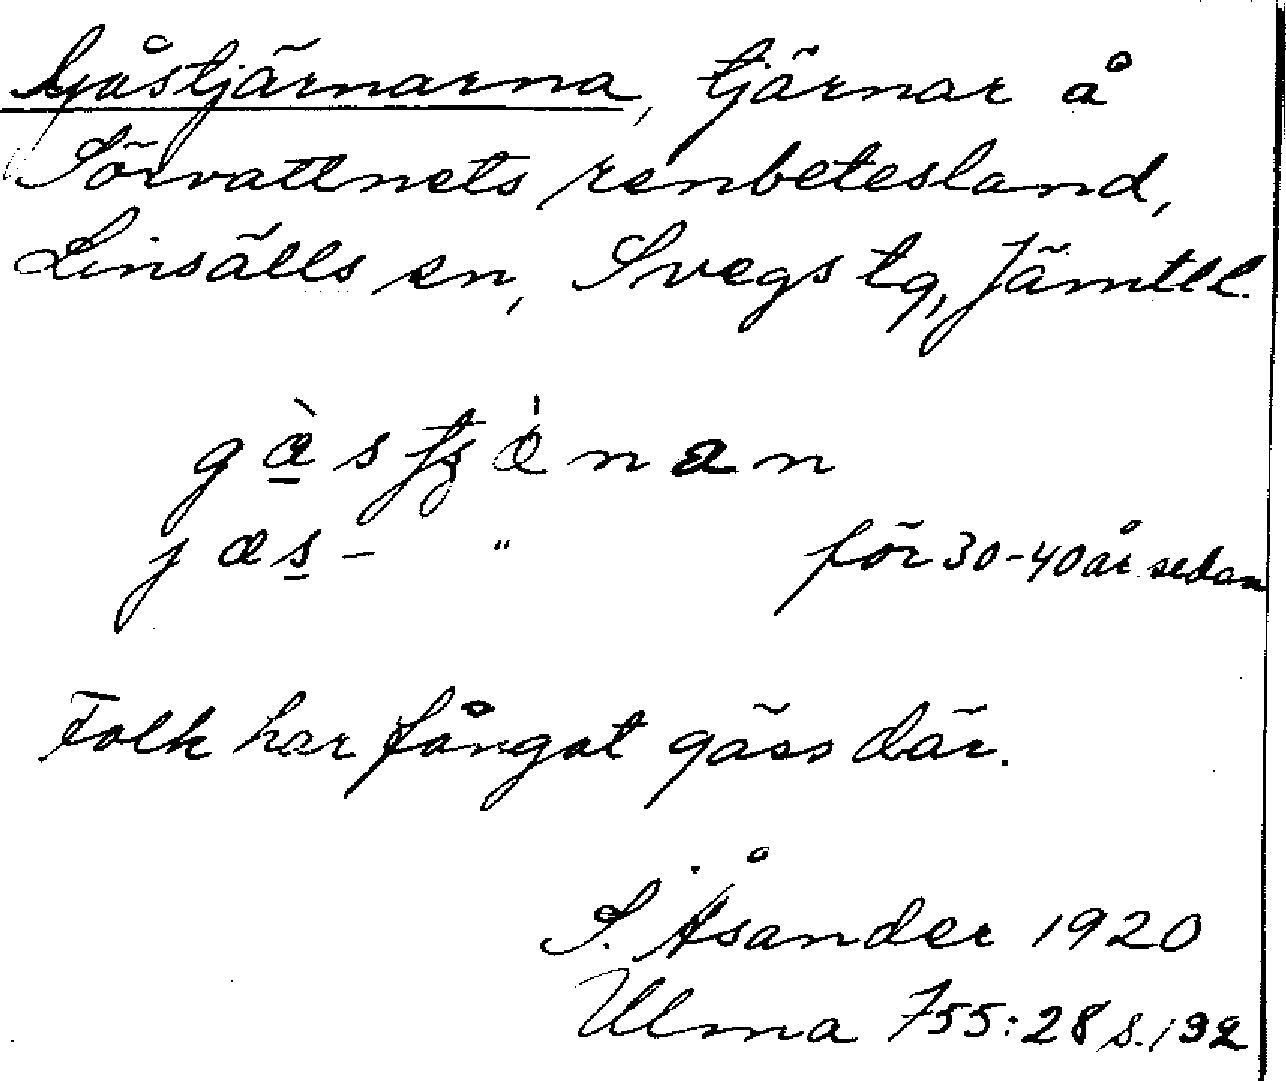 Gåstjärnarna, tjärnar å
Sörvattnets renbetesland,
Linsälls sn, Svegs tg, Jämtl l.
gæ̀stʃæ̀nan
jæs- " för 30-40 år sedan
Folk har fångat gäss där.
S. Åsander 1920
Ulma 755:28 s.132